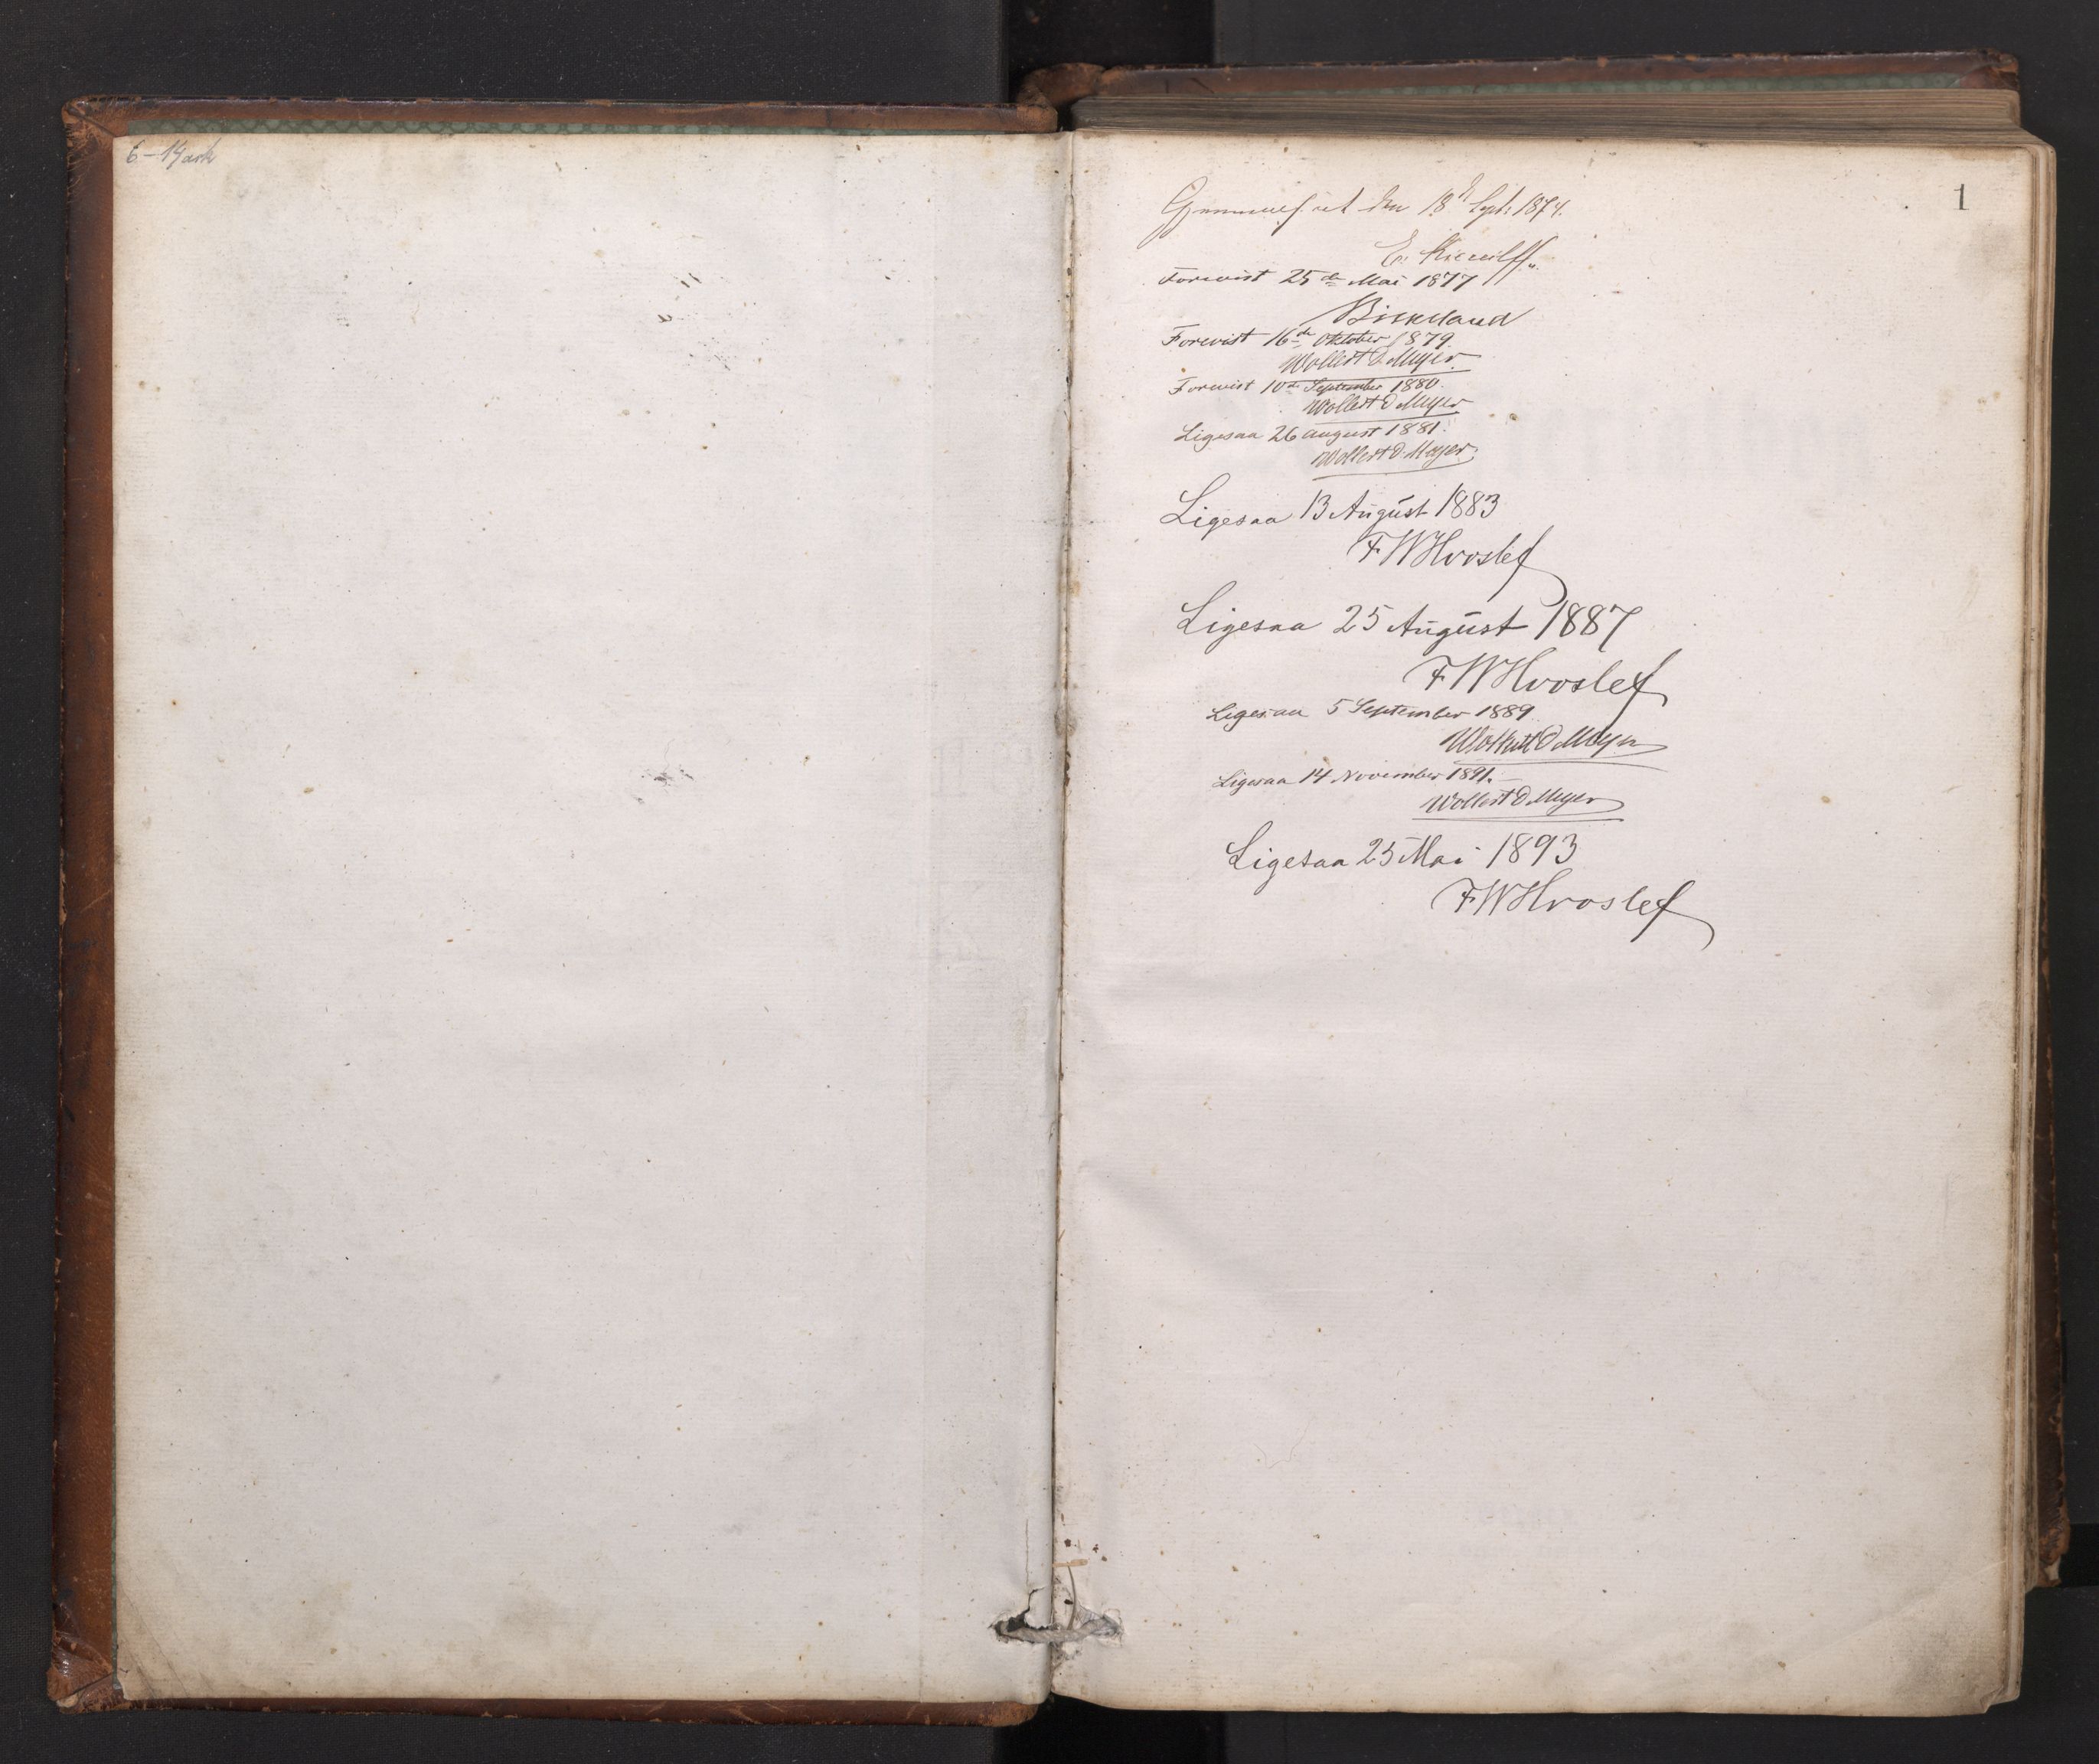 6 - 14 ark
1
den 18 Sept: 1874.
E.
Forevist 25de Mai 1877
Birkeland
Forevist 16de Oktober 1879.
Wollert D. Meyer.
Forevist 10de September 1880.
Wollert D Meyer
Ligesaa 26 august 1881.
Wollert D. Meyer.
Ligesaa 13 August 1883
FW Hvoslef
Ligesaa 25 August 1887
FW Hvoslef
Ligesaa 5 September 1889.
Wollert D Meyer
Ligesaa 14 November 1891.
Wollert D Meyer
Ligesaa 25 Mai 1893
FW Hvoslef